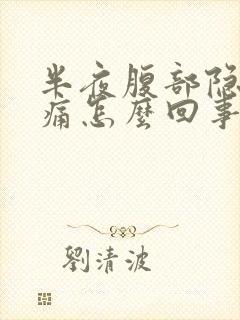 半夜腹部隐
痛怎麼回事
劉清波